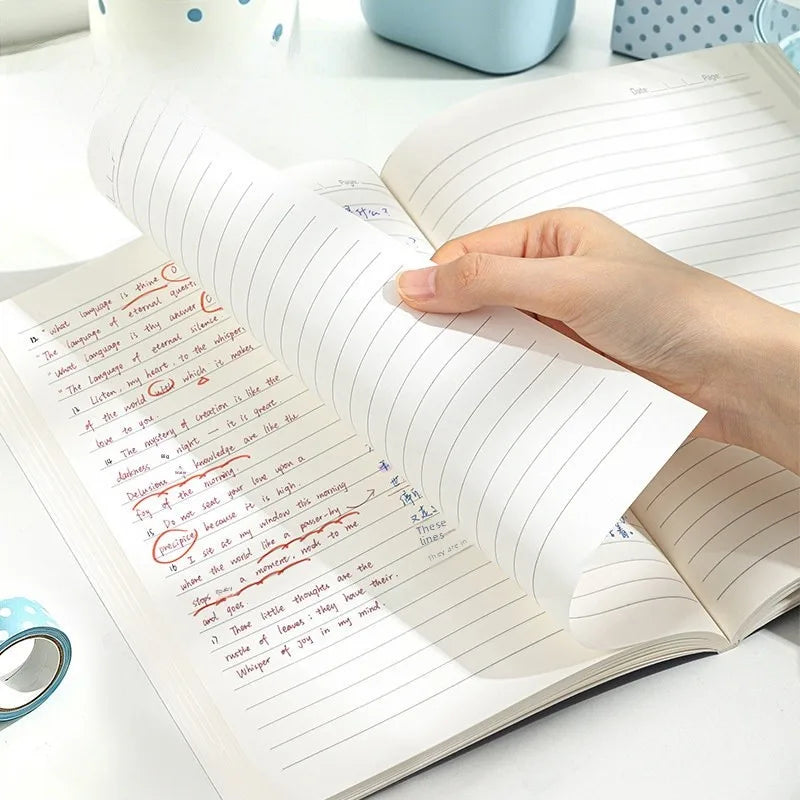 Date Page
Page
什么?
12. "What language is thine
"The language of eternal quest
"What language is thy answer
"The language of eternal silence
13 Listen, my heart, to the whispers
of the world with which it makes
love to you.
14 The mystery of creation is like the
darkness of night — it is great.
Delusions of knowledge are like the
fog of the morning.
15 Do not seat your love upon a
precipice because it is high.
16 I sit at my window this morning
where the world like a passer-by
stops for a moment, nods to me
and goes.
17 There little thoughts are the
rustle of leaves; they have their
whisper of joy in my mind.
These
lines
they are in